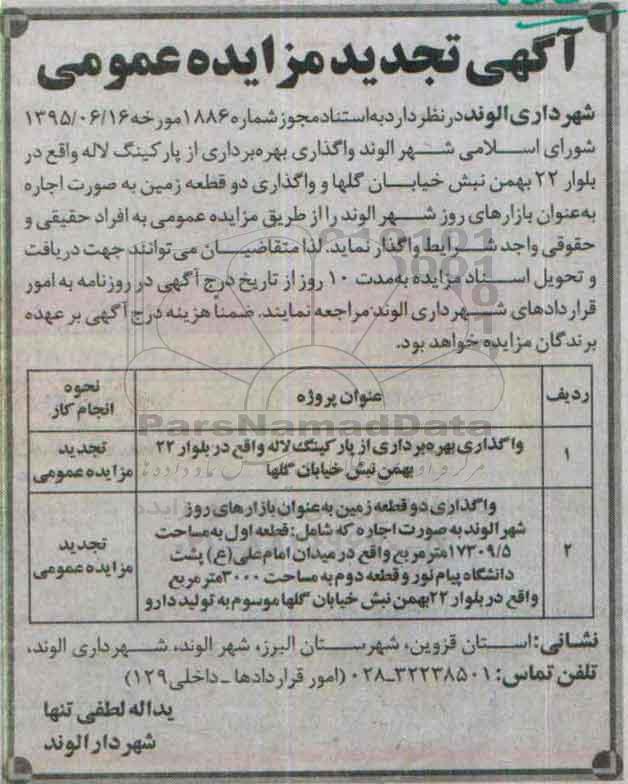 آگهی تجدید مزایده عمومی
شهرداری الوند در نظر دارد به استناد مجوز شماره ۱۸۸۶ مورخه ۱۳۹۵/۰۶/۱۶
شورای اسلامی شهر الوند واگذاری بهره‌برداری از پارکینگ لاله واقع در
بلوار ۲۲ بهمن نبش خیابان گلها و واگذاری دو قطعه زمین به صورت اجاره
به‌عنوان بازارهای روز شهر الوند را از طریق مزایده عمومی به افراد حقیقی و
حقوقی واجد شرایط واگذار نماید. لذا متقاضیان می‌توانند جهت دریافت
و تحویل اسناد مزایده به‌مدت ۱۰ روز از تاریخ درج آگهی در روزنامه به امور
قراردادهای شهرداری الوند مراجعه نمایند. ضمناً هزینه درج آگهی بر عهده
برندگان مزایده خواهد بود.
ردیف عنوان پروژه نحوه انجام کار
ParsNamadData
۱ واگذاری بهره‌برداری از پارکینگ لاله واقع در بلوار ۲۲ تجدید
بهمن نبش خیابان گلها مزایده عمومی
واگذاری دو قطعه زمین به‌عنوان بازارهای روز
شهر الوند به صورت اجاره که شامل: قطعه اول به مساحت
۲ ۱۷۳۰۹/۵ مترمربع واقع در میدان امام علی(ع) پشت تجدید
دانشگاه پیام نور و قطعه دوم به مساحت ۳۰۰۰ مترمربع مزایده عمومی
واقع در بلوار ۲۲ بهمن نبش خیابان گلها موسوم به تولید دارو
نشانی: استان قزوین، شهرستان البرز، شهر الوند، شهرداری الوند،
تلفن تماس: ۳۲۲۳۸۵۰۱-۰۲۸ (امور قراردادها - داخلی ۱۲۹)
یداله لطفی تنها
شهردار الوند